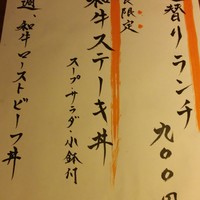 替りランチ 九〇〇円
限定
和牛ステーキ丼
スープ・サラダ・小鉢付
週、和牛ローストビーフ丼